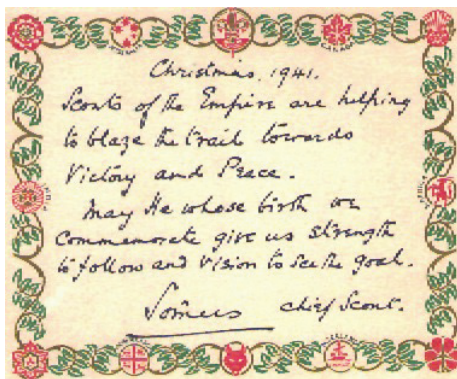 Christmas, 1941.
Scouts of the Empire are helping
to blaze the trail towards
Victory and Peace.
May He whose birth we
commemorate give us strength
to follow and vision to see the goal.
Somers Chief Scout.
CANADA